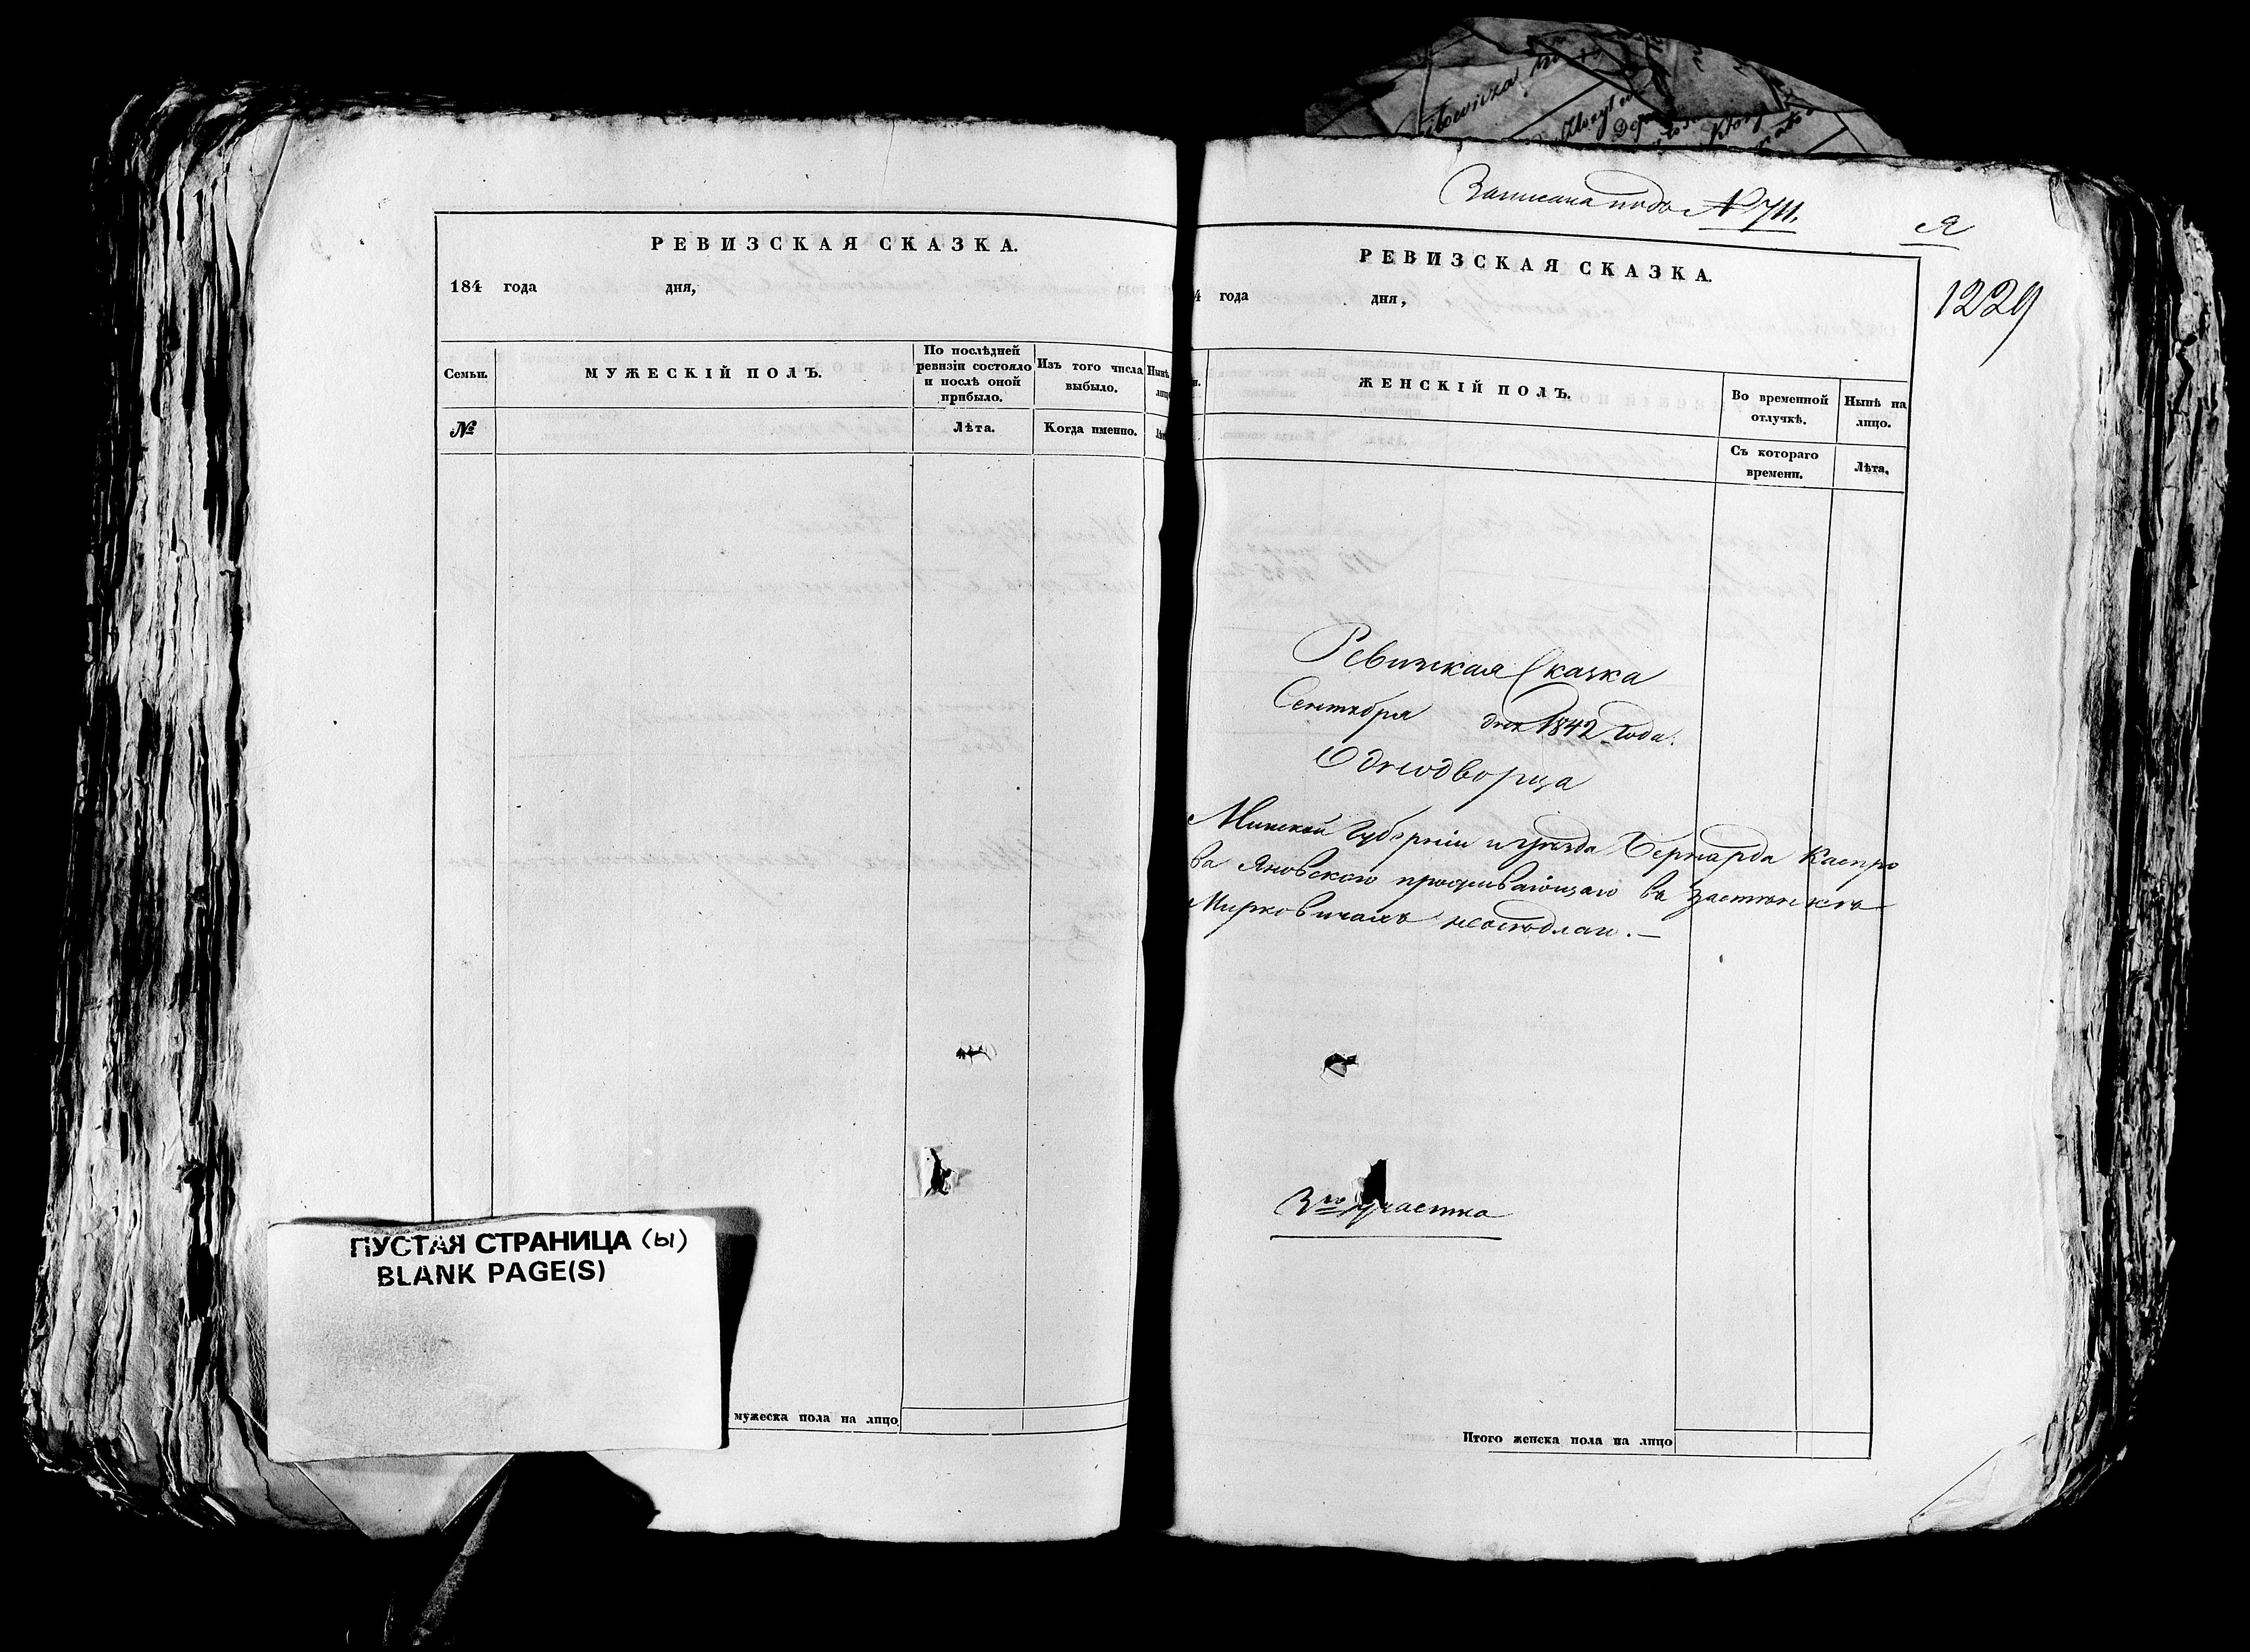 РЕВИЗСКАЯ СКАЗКА.
184 года дня,
Семьи.
МУЖЕСКІЙ ПОЛЪ.
По послѣдней
ревизіи состояло
и послѣ оной
прибыло.
Изъ того числа
выбыло.
Нынѣ
лицо
№
Лѣта.
Когда именно.
Лѣт
мужеска пола на лицо
ПУСТАЯ СТРАНИЦА (ы)
BLANK PAGE(S)
Записана подъ № 711.
Я
1229
РЕВИЗСКАЯ СКАЗКА.
4 года дня,
ЖЕНСКІЙ ПОЛЪ.
Во временной
отлучкѣ.
Нынѣ на
лицо.
Съ котораго
времени.
Лѣта.
Ревизская Сказка
Сентября дня 1842 года.
Однодворца
Минской Губерніи и уѣзда Бернарда Каспро
ва Яновского проживающаго въ застѣнкѣ
Мирковичахъ
3го участка
Итого женска пола на лицо